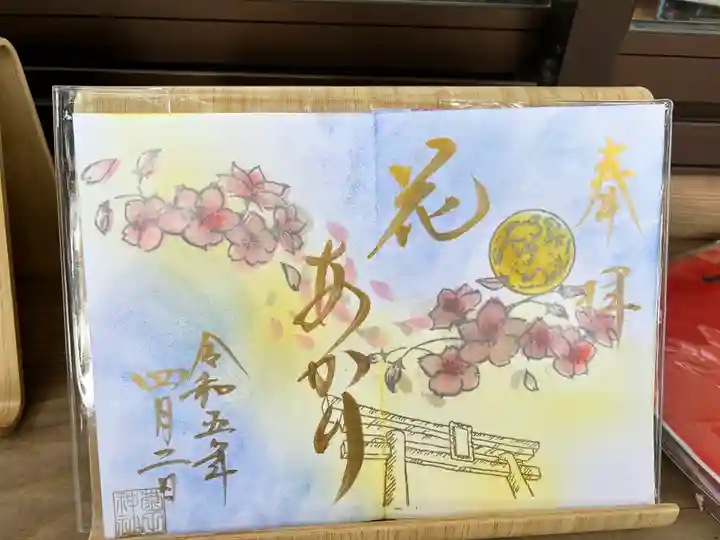 奉拝
花
あかり
令和五年
四月二日